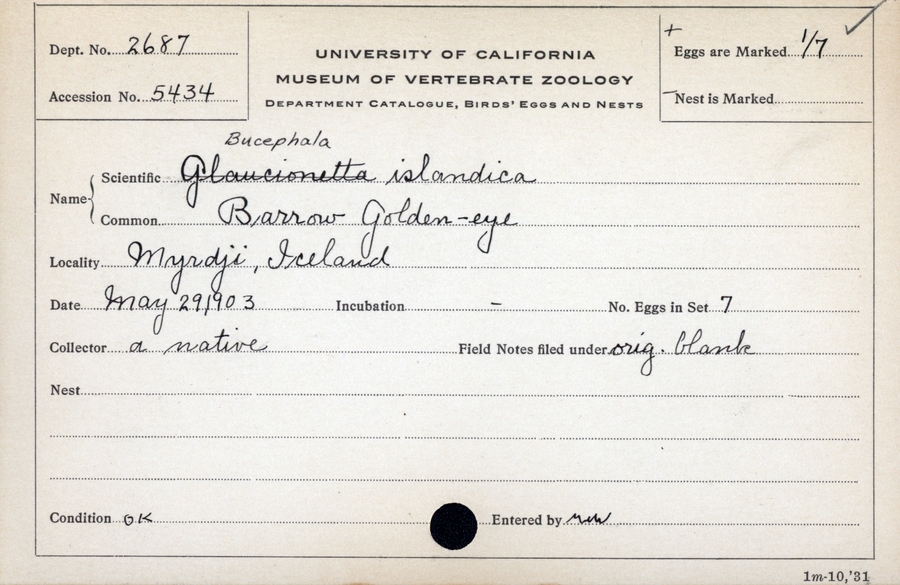 Dept. No. 2687
Accession No. 5434
UNIVERSITY OF CALIFORNIA
MUSEUM OF VERTEBRATE ZOOLOGY
DEPARTMENT CATALOGUE, BIRDS' EGGS AND NESTS
+ Eggs are Marked 1/7 ✓
- Nest is Marked
Bucephala
Name Scientific Glaucionetta islandica
Common Barrow Golden-eye
Locality Myrdji, Iceland
Date May 29, 1903 Incubation - No. Eggs in Set 7
Collector a native Field Notes filed under orig. blank
Nest
Condition OK Entered by
1m-10,'31